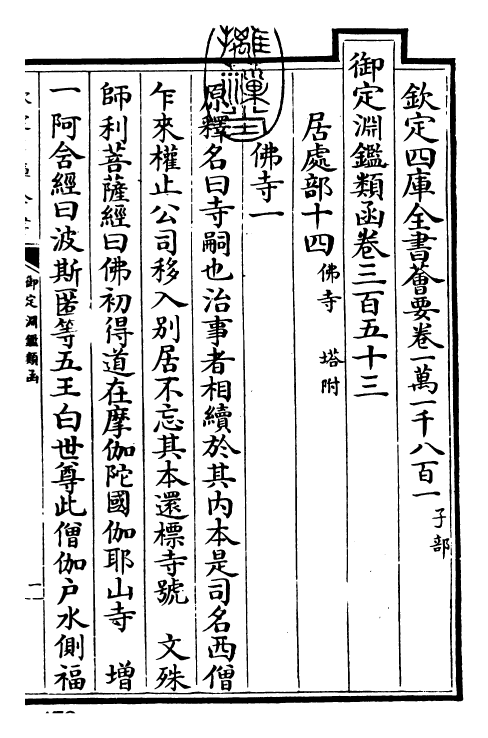 欽定四庫全書薈要卷一萬一千八百一 子部
御定淵鑑類函卷三百五十三
居處部十四 佛寺 塔附
佛寺一
原釋名曰寺嗣也治事者相續於其内本是司名西僧
乍來權止公司移入别居不忘其本還標寺號 文殊
師利菩薩經曰佛初得道在摩伽陀國伽耶山寺 增
一阿含經曰波斯匿等五王白世尊此僧伽戸水側福
御定淵鑑類函
一